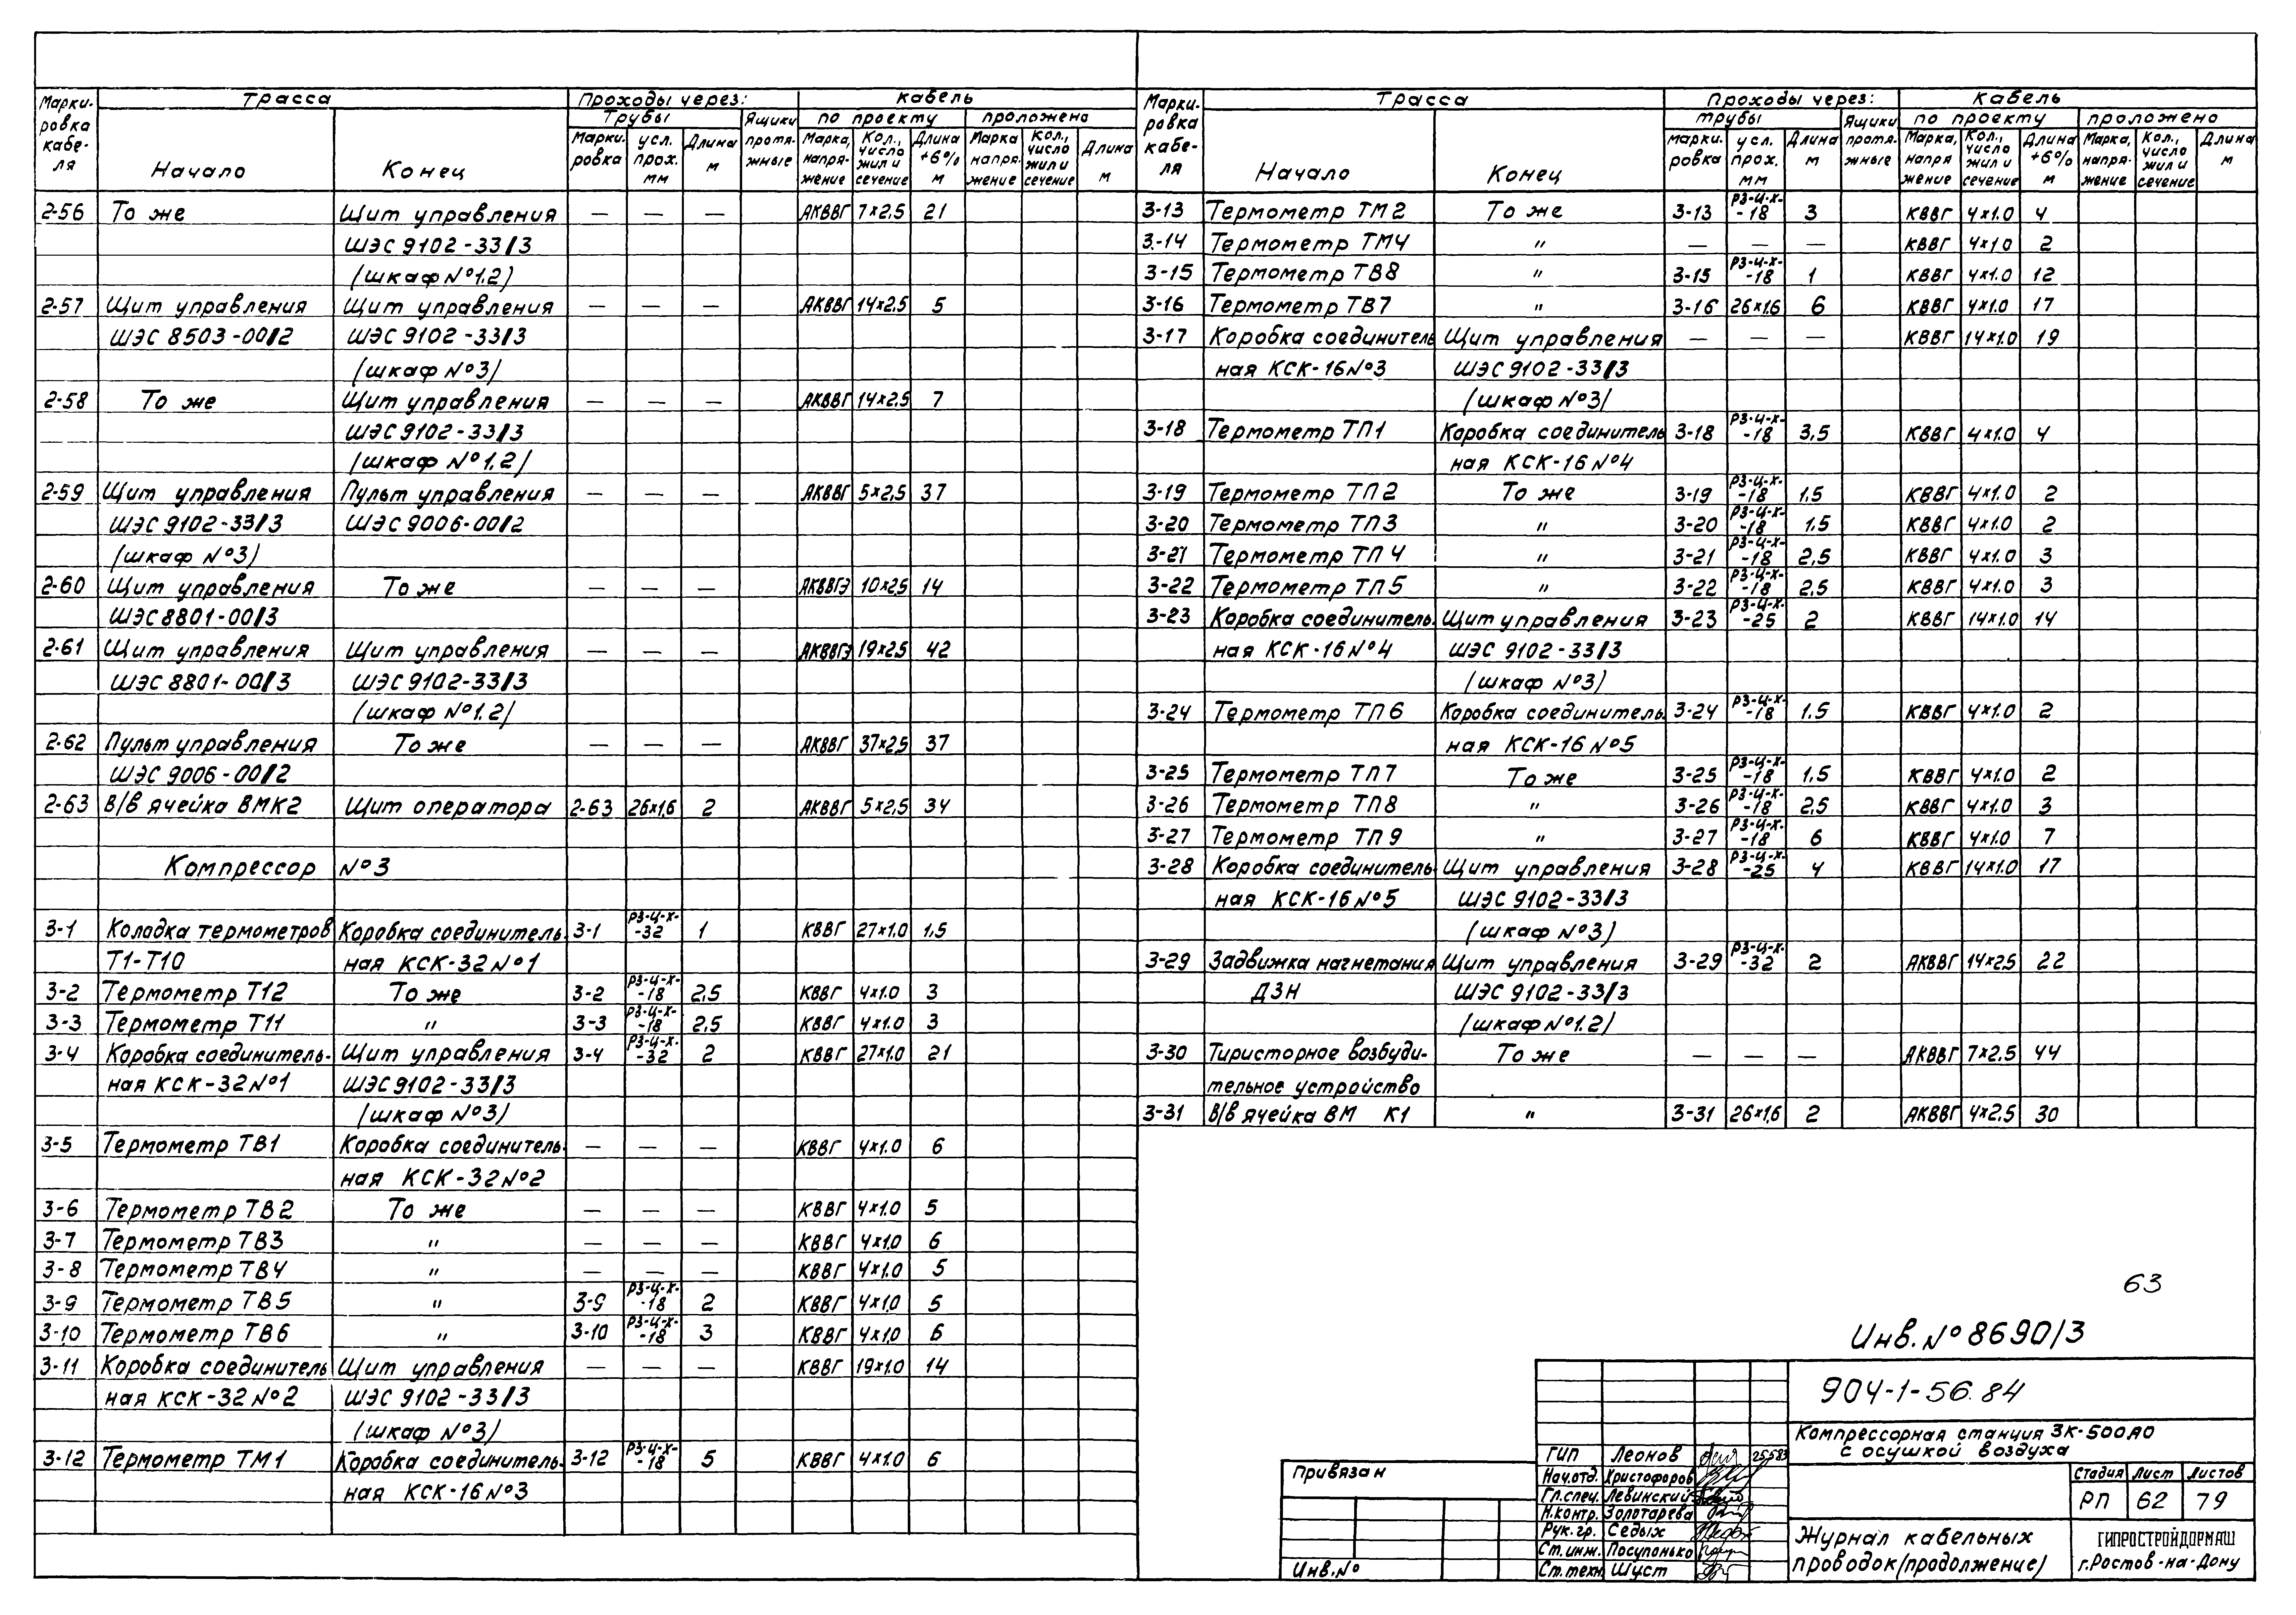 Марки-ровка кабе-ля | Трасса | Проходы через: | кабель
Трубы | Ящики протя-жные | по проекту | проложено
Начало | Конец | Марки-ровка | усл. прох. мм | Длина м | Марка, напря-жение | Кол., число жил и сечение | Длина +6% м | Марка напря-жение | кол., число жил и сечение | Длина м
2-56 | То же | Щит управления | — | — | — | АКВВГ | 7×2,5 | 21
ШЭС 9102-33/3
(шкаф №1.2)
2-57 | Щит управления | Щит управления | — | — | — | АКВВГ | 14×2,5 | 5
ШЭС 8503-00/2 | ШЭС 9102-33/3
(шкаф №3)
2-58 | То же | Щит управления | — | — | — | АКВВГ | 14×2,5 | 7
ШЭС 9102-33/3
(шкаф №1.2)
2-59 | Щит управления | Пульт управления | — | — | — | АКВВГ | 5×2,5 | 37
ШЭС 9102-33/3 | ШЭС 9006-00/2
(шкаф №3)
2-60 | Щит управления | То же | — | — | — | АКВВГЭ | 10×2,5 | 14
ШЭС 8801-00/3
2-61 | Щит управления | Щит управления | — | — | — | АКВВГЭ | 19×2,5 | 42
ШЭС 8801-00/3 | ШЭС 9102-33/3
(шкаф №1.2)
2-62 | Пульт управления | То же | — | — | — | АКВВГ | 37×2,5 | 37
ШЭС 9006-00/2
2-63 | В/в ячейка ВМК2 | Щит оператора | 2-63 | 26×1,6 | 2 | АКВВГ | 5×2,5 | 34
Компрессор №3
3-1 | Колодка термометров | Коробка соединитель- | 3-1 | РЗ-Ц-Х--32 | 1 | КВВГ | 27×1.0 | 1,5
Т1-Т10 | ная КСК-32 №1
3-2 | Термометр Т12 | То же | 3-2 | РЗ-Ц-Х--18 | 2,5 | КВВГ | 4×1.0 | 3
3-3 | Термометр Т11 | " | 3-3 | РЗ-Ц-Х--18 | 2,5 | КВВГ | 4×1.0 | 3
3-4 | Коробка соединитель- | Щит управления | 3-4 | РЗ-Ц-Х--32 | 2 | КВВГ | 27×1.0 | 21
ная КСК-32 №1 | ШЭС 9102-33/3
(шкаф №3)
3-5 | Термометр ТВ1 | Коробка соединитель- | — | — | — | КВВГ | 4×1.0 | 6
ная КСК-32 №2
3-6 | Термометр ТВ2 | То же | — | — | — | КВВГ | 4×1.0 | 5
3-7 | Термометр ТВ3 | " | — | — | — | КВВГ | 4×1.0 | 6
3-8 | Термометр ТВ4 | " | — | — | — | КВВГ | 4×1.0 | 5
3-9 | Термометр ТВ5 | " | 3-9 | РЗ-Ц-Х--18 | 2 | КВВГ | 4×1.0 | 5
3-10 | Термометр ТВ6 | " | 3-10 | РЗ-Ц-Х--18 | 3 | КВВГ | 4×1.0 | 6
3-11 | Коробка соединитель | Щит управления | — | — | — | КВВГ | 19×1.0 | 14
ная КСК-32 №2 | ШЭС 9102-33/3
(шкаф №3)
3-12 | Термометр ТМ1 | Коробка соединитель- | 3-12 | РЗ-Ц-Х--18 | 5 | КВВГ | 4×1.0 | 6
ная КСК-16 №3
Марки-ровка кабе-ля | Трасса | Проходы через: | Кабель
трубы | Ящики протя-жные | по проекту | проложено
Начало | Конец | марки-ровка | усл. прох. мм | Длина м | Марка, напря жение | Кол., число жил и сечение | Длина +6% м | Марка, напря-жение | Кол., число жил и сечение | Длина м
3-13 | Термометр ТМ2 | То же | 3-13 | РЗ-Ц-Х--18 | 3 | КВВГ | 4×1.0 | 4
3-14 | Термометр ТМ4 | " | — | — | — | КВВГ | 4×1.0 | 2
3-15 | Термометр ТВ8 | " | 3-15 | РЗ-Ц-Х--18 | 1 | КВВГ | 4×1.0 | 12
3-16 | Термометр ТВ7 | " | 3-16 | 26×1,6 | 6 | КВВГ | 4×1.0 | 17
3-17 | Коробка соединитель | Щит управления | — | — | — | КВВГ | 14×1.0 | 19
ная КСК-16 №3 | ШЭС 9102-33/3
(шкаф №3)
3-18 | Термометр ТП1 | Коробка соединитель | 3-18 | РЗ-Ц-Х--18 | 3,5 | КВВГ | 4×1.0 | 4
ная КСК-16 №4
3-19 | Термометр ТП2 | То же | 3-19 | РЗ-Ц-Х--18 | 1,5 | КВВГ | 4×1.0 | 2
3-20 | Термометр ТП3 | " | 3-20 | РЗ-Ц-Х--18 | 1.5 | КВВГ | 4×1.0 | 2
3-21 | Термометр ТП4 | " | 3-21 | РЗ-Ц-Х--18 | 2,5 | КВВГ | 4×1.0 | 3
3-22 | Термометр ТП5 | " | 3-22 | РЗ-Ц-Х--18 | 2,5 | КВВГ | 4×1.0 | 3
3-23 | Коробка соединитель- | Щит управления | 3-23 | РЗ-Ц-Х--25 | 2 | КВВГ | 14×1.0 | 14
ная КСК-16 №4 | ШЭС 9102-33/3
(шкаф №3)
3-24 | Термометр ТП6 | Коробка соединитель- | 3-24 | РЗ-Ц-Х--18 | 1.5 | КВВГ | 4×1.0 | 2
ная КСК-16 №5
3-25 | Термометр ТП7 | То же | 3-25 | РЗ-Ц-Х--18 | 1,5 | КВВГ | 4×1.0 | 2
3-26 | Термометр ТП8 | " | 3-26 | РЗ-Ц-Х--18 | 2,5 | КВВГ | 4×1.0 | 3
3-27 | Термометр ТП9 | " | 3-27 | РЗ-Ц-Х--18 | 6 | КВВГ | 4×1.0 | 7
3-28 | Коробка соединитель- | Щит управления | 3-28 | РЗ-Ц-Х--25 | 4 | КВВГ | 14×1.0 | 17
ная КСК-16 №5 | ШЭС 9102-33/3
(шкаф №3)
3-29 | Задвижка нагнетания | Щит управления | 3-29 | РЗ-Ц-Х--32 | 2 | АКВВГ | 14×2,5 | 22
ДЗН | ШЭС 9102-33/3
(шкаф №1.2)
3-30 | Тиристорное возбуди- | То же | — | — | — | АКВВГ | 7×2.5 | 44
тельное устройство
3-31 | В/в ячейка ВМ К1 | " | 3-31 | 26×1,6 | 2 | АКВВГ | 4×2.5 | 30
63
Инв.№ 8690/3
904-1-56.84
Компрессорная станция 3К-500АО
с осушкой воздуха
Стадия | Лист | Листов
РП | 62 | 79
Журнал кабельных
проводок (продолжение)
ГИПРОСТРОЙДОРМАШ
г.Ростов-на-Дону
ГИП | Леонов | 25.583
Нач.отд. | Христофоров
Гл.спец. | Левинский
Н.контр. | Золотарева
Рук.гр. | Седых
Ст.инж. | Посупонько
Ст.техн. | Шуст
Привязан
Инв.№